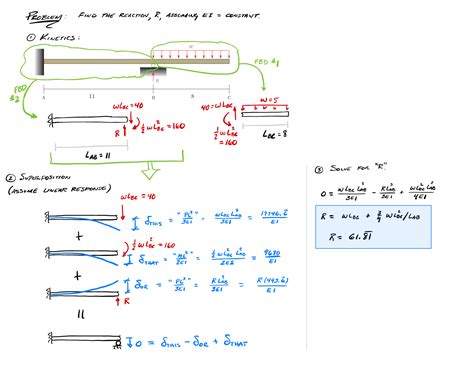 PROBLEM: FIND THE REACTION, R, ASSUMING EI = CONSTANT.
① KINETICS:
w
FBD #1
FBD #2
A 11 B 8 C
wLBC=40
R
½wL²BC=160
LAB=11
40=wLBC
½wL²BC=160
w=5
LBC=8
② SUPERPOSITION
(ASSUME LINEAR RESPONSE)
wLBC=40
δTHIS = "PL³/3EI" = wLBC L³AB/3EI = 17746.6̅/EI
+
½wL²BC=160
δTHAT = "ML²/2EI" = ½wL²BC L²AB/2EI = 9680/EI
+
R
δOR = "PL³/3EI" = RL³AB/3EI = R(443.6̅)/EI
=
0 = δTHIS - δOR + δTHAT
③ SOLVE FOR "R"
0 = wLBC L³AB/3EI - RL³AB/3EI + wL²BC L²AB/4EI
R = wLBC + ¾ wL²BC/LAB
R = 61.8̅1̅